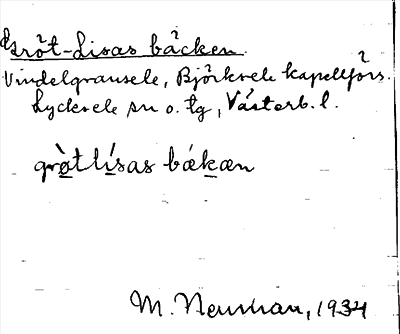 Gröt-Lisas bäcken
Vindelgransele, Björksele kapellförs.
Lycksele sn o. tg, Västerb. l.
grö̀tlísas bǽkæn
1934